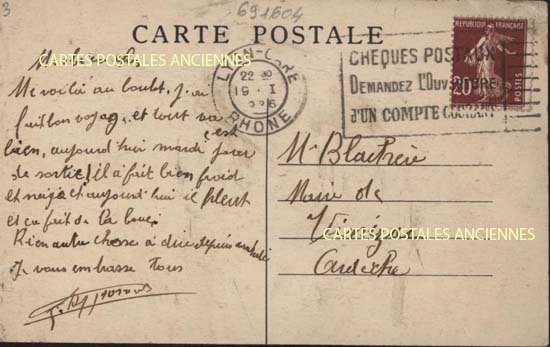 3
691604
CARTE POSTALE
CARTES POSTALES ANCIENNES
LYON-GARE
22 30
19 . I
RHONE
CHEQUES POSTAUX
DEMANDEZ L'OUVERTURE
D'UN COMPTE COURANT
REPUBLIQUE FRANÇAISE
20
POSTES
Me voilà au boulot, j'ai
fait bon voyage, et tout va
bien, aujourd'hui mardi c'est jour
de sortie, il a fait bien froid
et neigé et aujourd'hui il pleut
et ça fait de la boue
Rien autre chose à dire depuis
Je vous embrasse tous
Mr
Maire de
CARTES POSTALES ANCIENNES
Ardèche